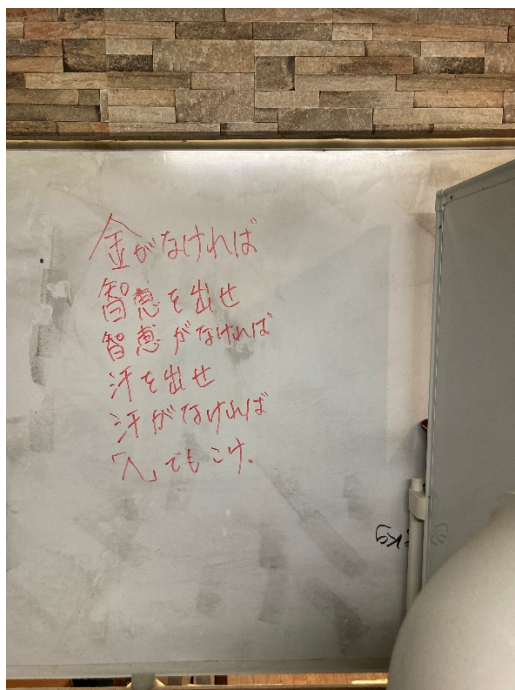 金がなければ
智恵を出せ
智恵がなければ
汗を出せ
汗がなければ
「へ」でもこけ、